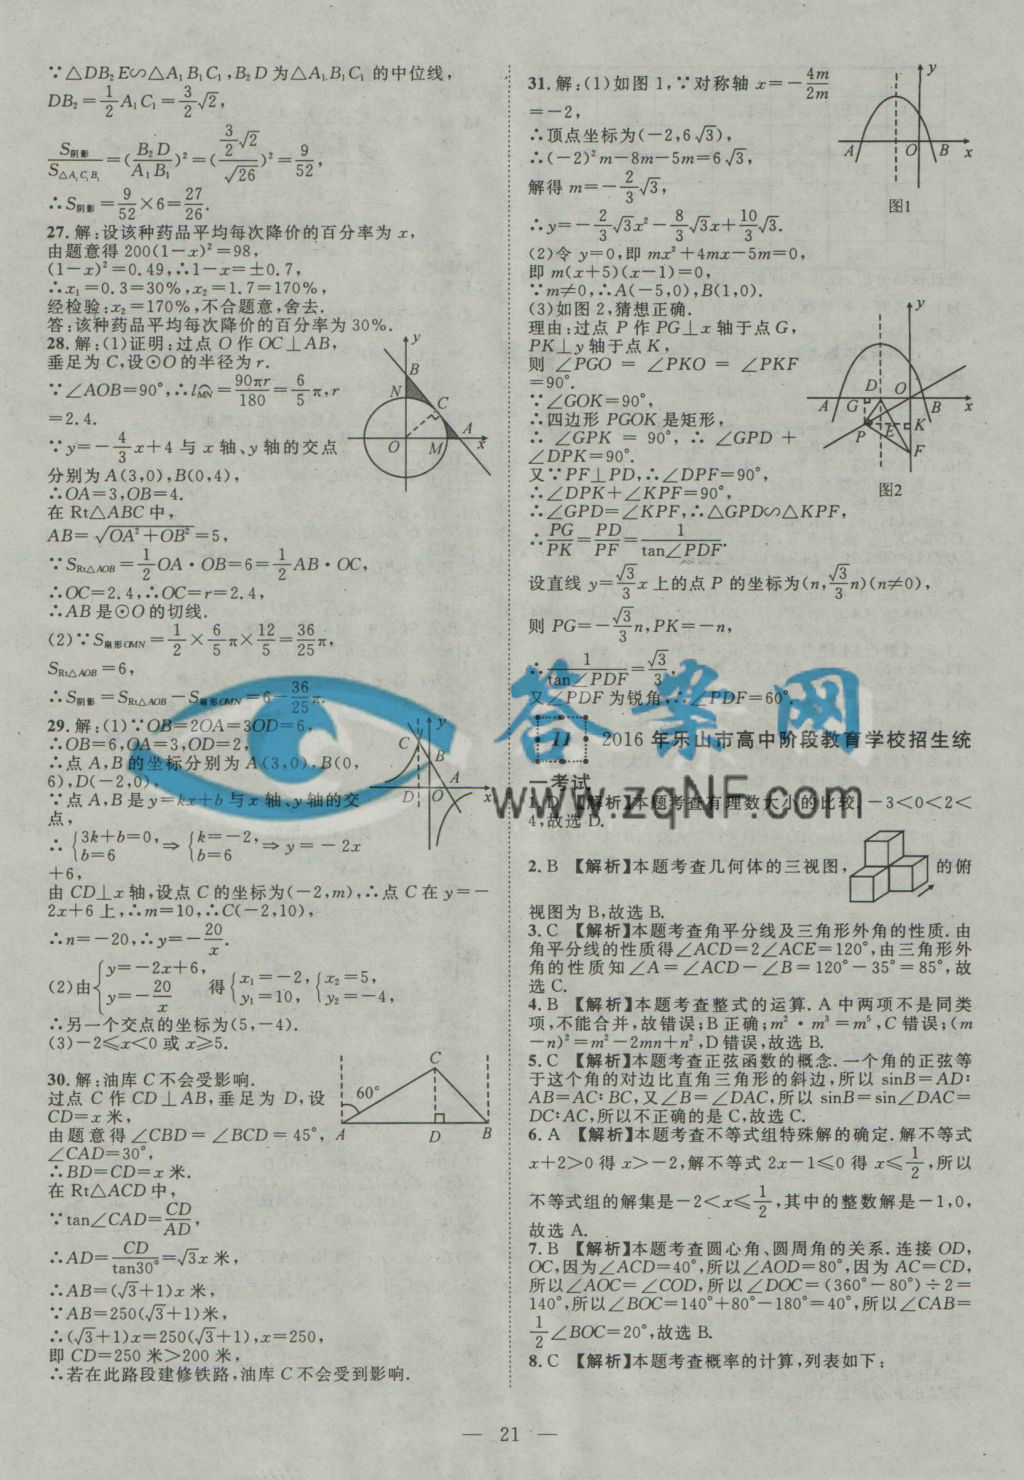 ∵△DB₂E∽△A₁B₁C₁,B₂D为△A₁B₁C₁的中位线,
DB₂=1/2A₁C₁=3/2√2,
S阴影/S△A₁C₁B₁=(B₂D/A₁B₁)²=(3/2√2/√26)²=9/52,
∴S阴影=9/52×6=27/26.
27.解:设该种药品平均每次降价的百分率为x,
由题意得200(1-x)²=98,
(1-x)²=0.49,∴1-x=±0.7,
∴x₁=0.3=30%,x₂=1.7=170%,
经检验:x₂=170%,不合题意,舍去.
答:该种药品平均每次降价的百分率为30%.
28.解:(1)证明:过点O作OC⊥AB,
垂足为C,设⊙O的半径为r.
∵∠AOB=90°,∴l⌒MN=90πr/180=6/5π,r
=2.4.
∵y=-4/3x+4与x轴、y轴的交点
分别为A(3,0),B(0,4),
∴OA=3,OB=4.
在Rt△ABC中,
AB=√(OA²+OB²)=5,
∵SRt△AOB=1/2OA·OB=6=1/2AB·OC,
∴OC=2.4,∴OC=r=2.4,
∴AB是⊙O的切线.
(2)∵S扇形OMN=1/2×6/5π×12/5=36/25π,
SRt△AOB=6,
∴S阴影=SRt△AOB-S扇形OMN=6-36/25π.
y
B
N
C
A
O
M
x
29.解:(1)∵OB=2OA=3OD=6,
∴OB=6,OA=3,OD=2,
∴点A,B的坐标分别为A(3,0),B(0,
6),D(-2,0),
∵点A,B是y=kx+b与x轴、y轴的交
点,
∴{3k+b=0, b=6⇒{k=-2, b=6⇒y=-2x
+6,
由CD⊥x轴,设点C的坐标为(-2,m),∴点C在y=-
2x+6上,∴m=10,∴C(-2,10),
∴n=-20,∴y=-20/x.
(2)由{y=-2x+6, y=-20/x得{x₁=-2, y₁=10,{x₂=5, y₂=-4,
∴另一个交点的坐标为(5,-4).
(3)-2≤x<0或x≥5.
y
C
B
A
D
O
x
30.解:油库C不会受影响.
过点C作CD⊥AB,垂足为D,设
CD=x米,
由题意得∠CBD=∠BCD=45°,
∠CAD=30°,
∴BD=CD=x米.
在Rt△ACD中,
∵tan∠CAD=CD/AD,
∴AD=CD/tan30°=√3x米,
∴AB=(√3+1)x米,
∵AB=250(√3+1)米,
∴(√3+1)x=250(√3+1),x=250,
即CD=250米>200米,
∴若在此路段建修铁路,油库C不会受到影响.
C
60°
A
D
B
31.解:(1)如图1,∵对称轴x=-4m/2m
=-2,
∴顶点坐标为(-2,6√3),
∴(-2)²m-8m-5m=6√3,
解得m=-2/3√3,
∴y=-2/3√3x²-8/3√3x+10/3√3.
(2)令y=0,即mx²+4mx-5m=0,
即m(x+5)(x-1)=0,
∵m≠0,∴A(-5,0),B(1,0).
(3)如图2,猜想正确.
理由:过点P作PG⊥x轴于点G,
PK⊥y轴于点K,
则∠PGO=∠PKO=∠PKF
=90°.
∵∠GOK=90°,
∴四边形PGOK是矩形,
∴∠GPK=90°,∴∠GPD+
∠DPK=90°.
又∵PF⊥PD,∴∠DPF=90°,
∴∠DPK+∠KPF=90°,
∴∠GPD=∠KPF,∴△GPD∽△KPF,
∴PG/PK=PD/PF=1/tan∠PDF.
设直线y=√3/3x上的点P的坐标为(n,√3/3n)(n≠0),
则PG=-√3/3n,PK=-n,
∴1/tan∠PDF=√3/3,
又∠PDF为锐角,∴∠PDF=60°.
y
A
O
B
x
图1
y
D
O
A
G
B
x
P
E
K
F
图2
11 2016年乐山市高中阶段教育学校招生统
一考试
1.D 【解析】本题考查有理数大小的比较.-3<0<2<
4,故选D.
2.B 【解析】本题考查几何体的三视图,的俯
视图为B,故选B.
3.C 【解析】本题考查角平分线及三角形外角的性质.由
角平分线的性质得∠ACD=2∠ACE=120°,由三角形外
角的性质知∠A=∠ACD-∠B=120°-35°=85°,故
选C.
4.B 【解析】本题考查整式的运算.A中两项不是同类
项,不能合并,故错误;B正确;m²·m³=m⁵,C错误;(m
-n)²=m²-2mn+n²,D错误,故选B.
5.C 【解析】本题考查正弦函数的概念.一个角的正弦等
于这个角的对边比直角三角形的斜边,所以sinB=AD:
AB=AC:BC,又∠B=∠DAC,所以sinB=sin∠DAC=
DC:AC,所以不正确的是C,故选C.
6.A 【解析】本题考查不等式组特殊解的确定.解不等式
x+2>0得x>-2,解不等式2x-1≤0得x≤1/2,所以
不等式组的解集是-2<x≤1/2,其中的整数解是-1,0,
故选A.
7.B 【解析】本题考查圆心角、圆周角的关系.连接OD,
OC,因为∠ACD=40°,所以∠AOD=80°,因为AC=CD,
所以∠AOC=∠COD,所以∠DOC=(360°-80°)÷2=
140°,所以∠BOC=140°+80°-180°=40°,所以∠CAB=
1/2∠BOC=20°,故选B.
8.C 【解析】本题考查概率的计算,列表如下:
答案网
www.zqNF.com
— 21 —